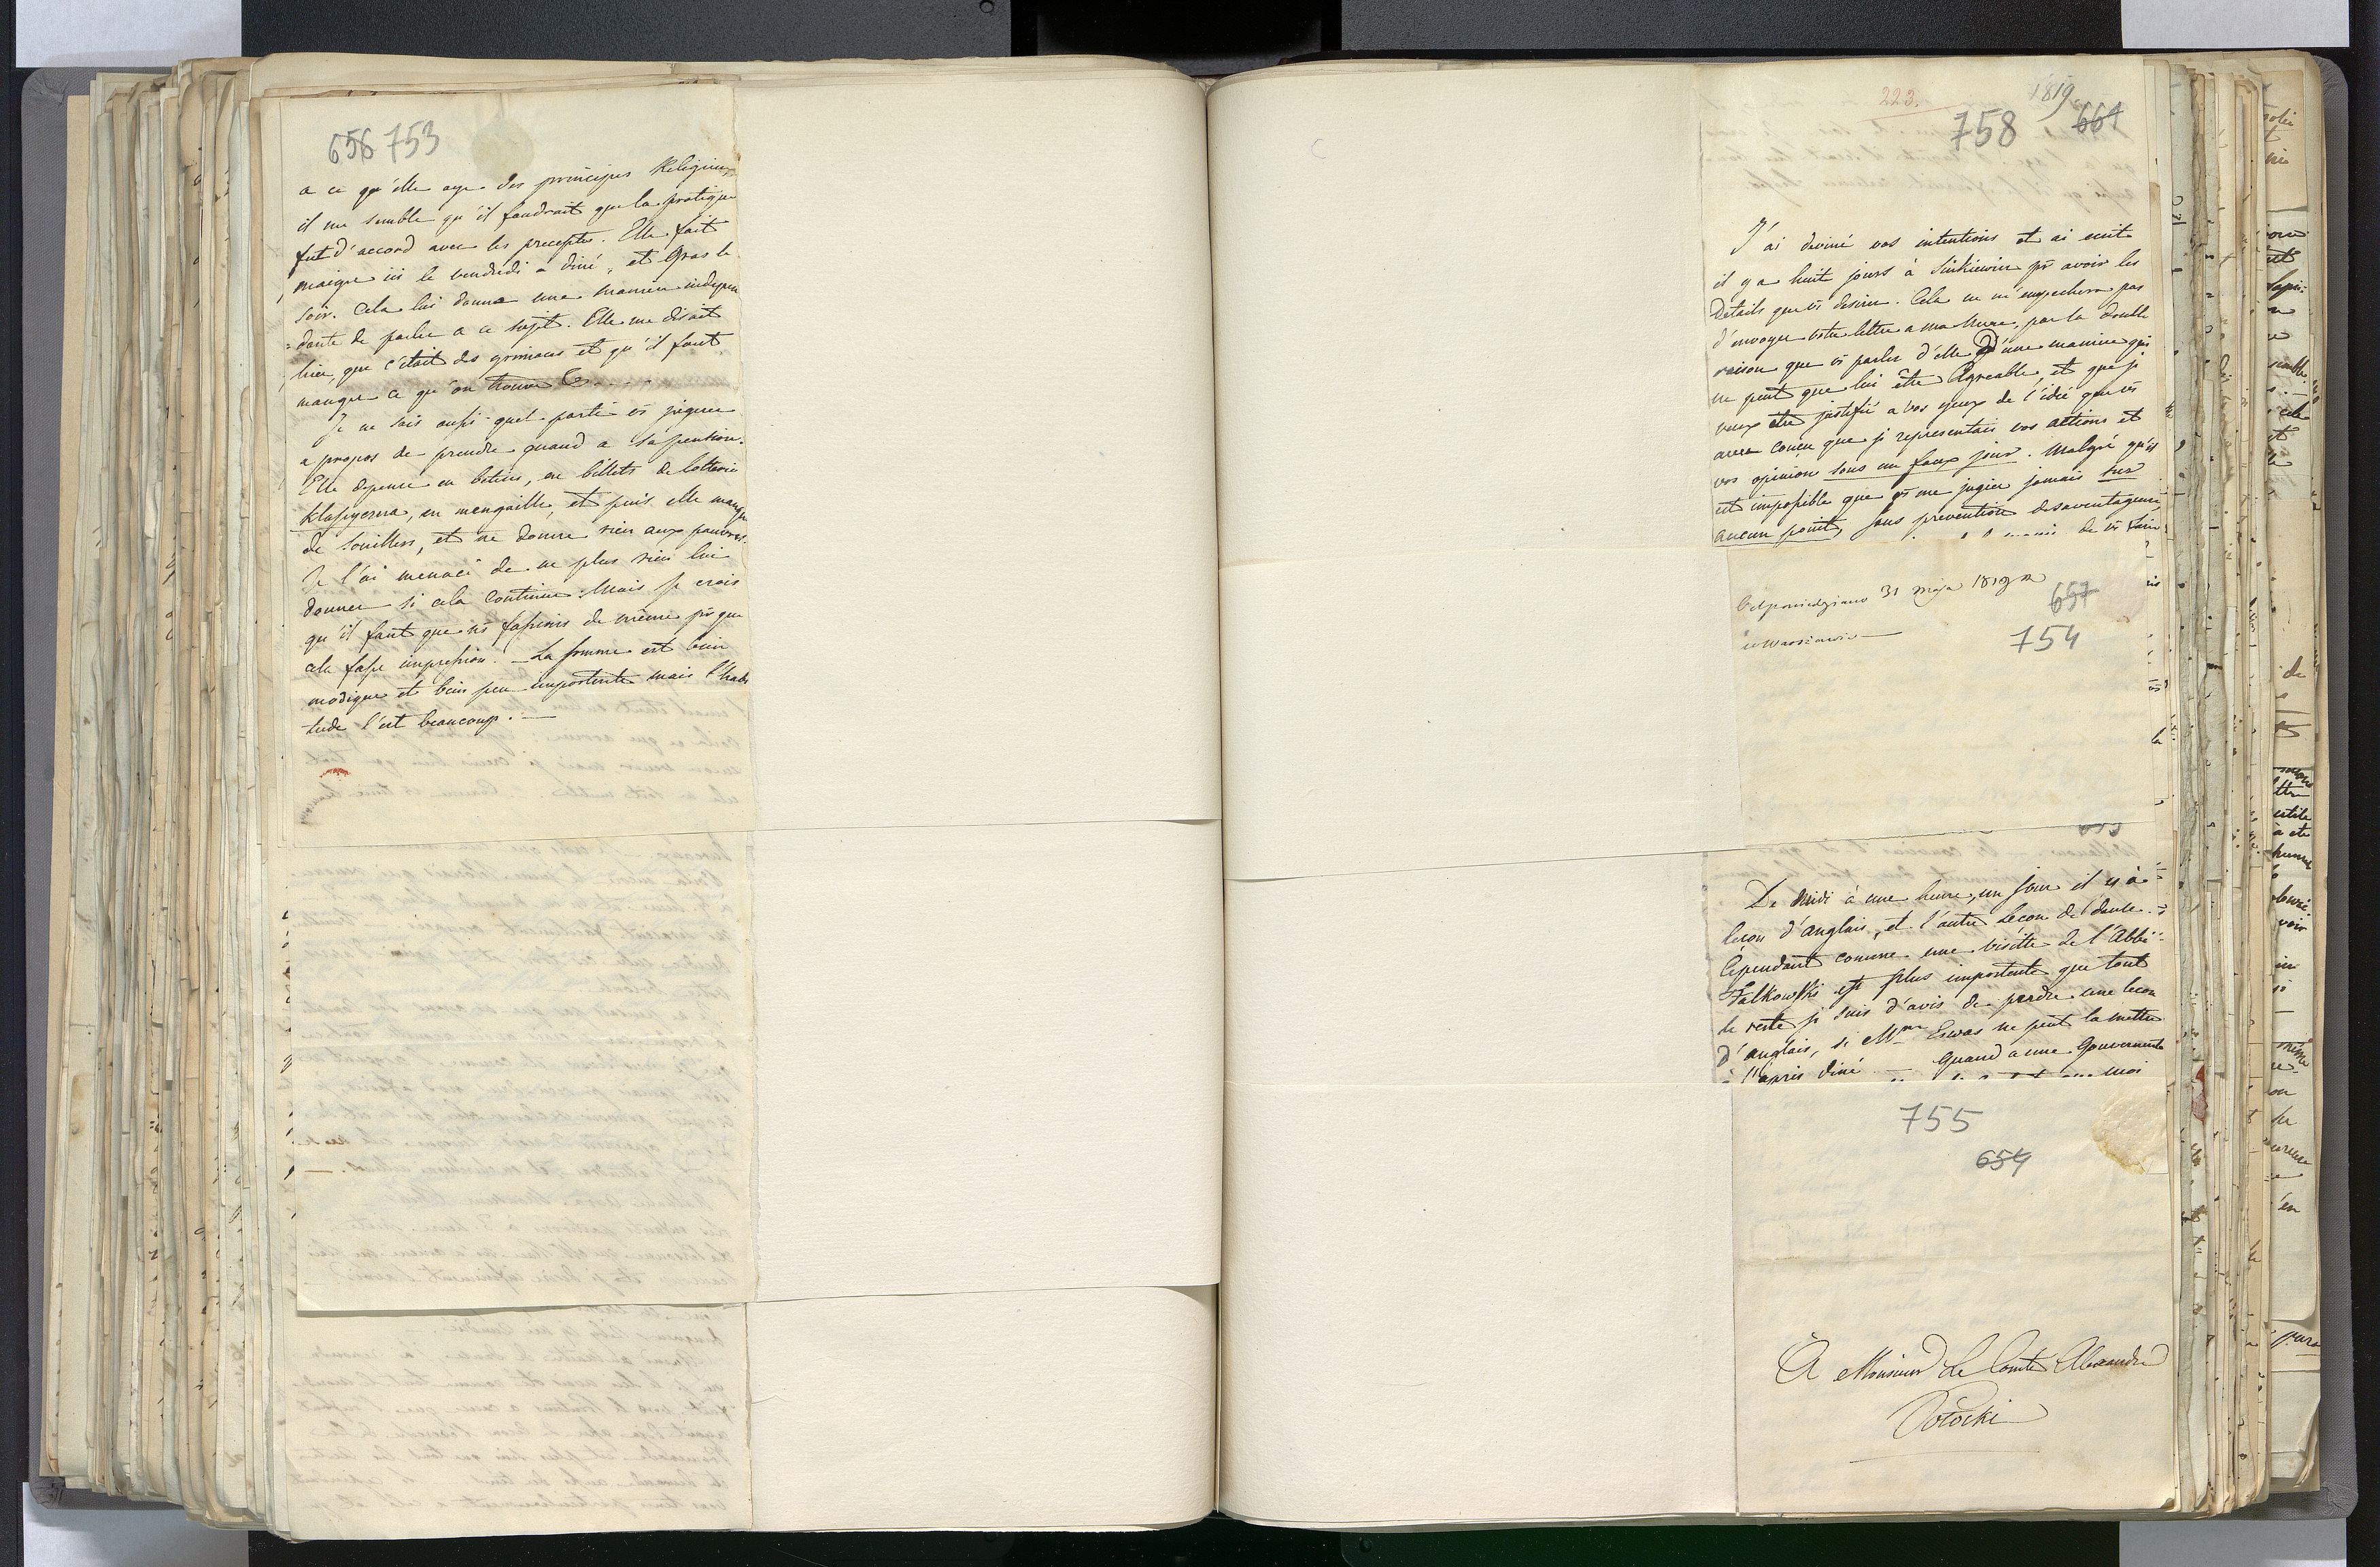 656 753
a ce qu'elle aye des principes Religieux
il me semble qu'il faudrait que la pratique
fut d'accord avec les preceptes. Elle fait
maigre ici le vendredi a diné, et gras le
soir. Cela lui donne une maniere indepen
=dante de parler a ce sujet. Elle me disait
hier, que c'etait des grimaces et qu'il faut
manger ce qu'on trouve
Je ne sais aussi quel parti vs jugerez
a propos de prendre quand a sa pension.
Elle depense en betises, en billets de lotterie
Klassyczna, en mangaille, et puis elle manque
de souilliers, et ne donne rien aux pauvres.
Je l'ai menacé de ne plus rien lui
donner si cela continue. Mais je crois
qu'il faut que ns fassions de même pr que
cela fasse impression. — La somme est bien
modique et bien peu importente mais l'habi
tude l'est beaucoup. —
223. 1819
758 661
J'ai deviné vos intentions et ai ecrit
il y a huit jours à Sinkiewicz pr avoir les
Details que vs desirez. Cela ne m'empechera pas
d'envoyer votre lettre a ma Mere, par la double
raison que vs parlez d'elle D'une maniere qui
ne peut que lui être Agreable, et que je
veux être justifié a vos yeux de l'idée que vs
avez concu que je representais vos actions et
vos opinions sous un faux jour. Malgré qu'il
est impossible que vs me jugiez jamais sur
aucun point, sans prevention desaventageuse
de vs
Odpowiedziano 31 Maja 1819
w Warszawie —
657
754
De Midi à une heure, un jour il y à
leçon d'anglais, et l'autre Lecon de danse.
Cependant comme une visitte de l'Abbé
Falkowski est plus importente que tout
le reste je suis d'avis de perdre une lecon
d'anglais, si Mme Eswas ne peut la mettre
à l'après diné — Quand a une Gouvernante
moi
755
654
A Monsieur Le Comte Alexandre
Potocki